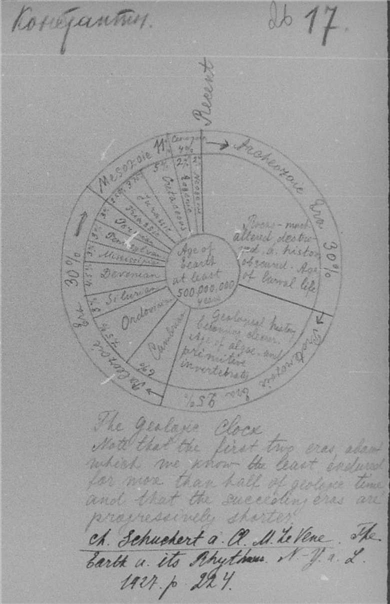 Константин.
26 17.
Recent
Archeozoic Era 30%
Proterozoic Era 25%
Paleozoic Era 30%
Mesozoic 11%
Cenozoic 4%
Cretaceous
Jurassic
Triassic
Permian
Devonian
Silurian
Ordovician
Cambrian
Age of
Earth
at least
500,000,000
years
Rocks most
altered
history
obscured. Age
of larval life
Geological history
becoming clearer.
Age of algae and
primitive
invertebrates
The Geologic Clock
Note that the first two eras, about
which we know the least endured
for more than half of geologic time
and that the succeeding eras are
progressively shorter
Ch. Schuchert a. Cl. M. LeVene. The
Earth a. its Rhythms N-Y. a. L.
1927. p. 224.